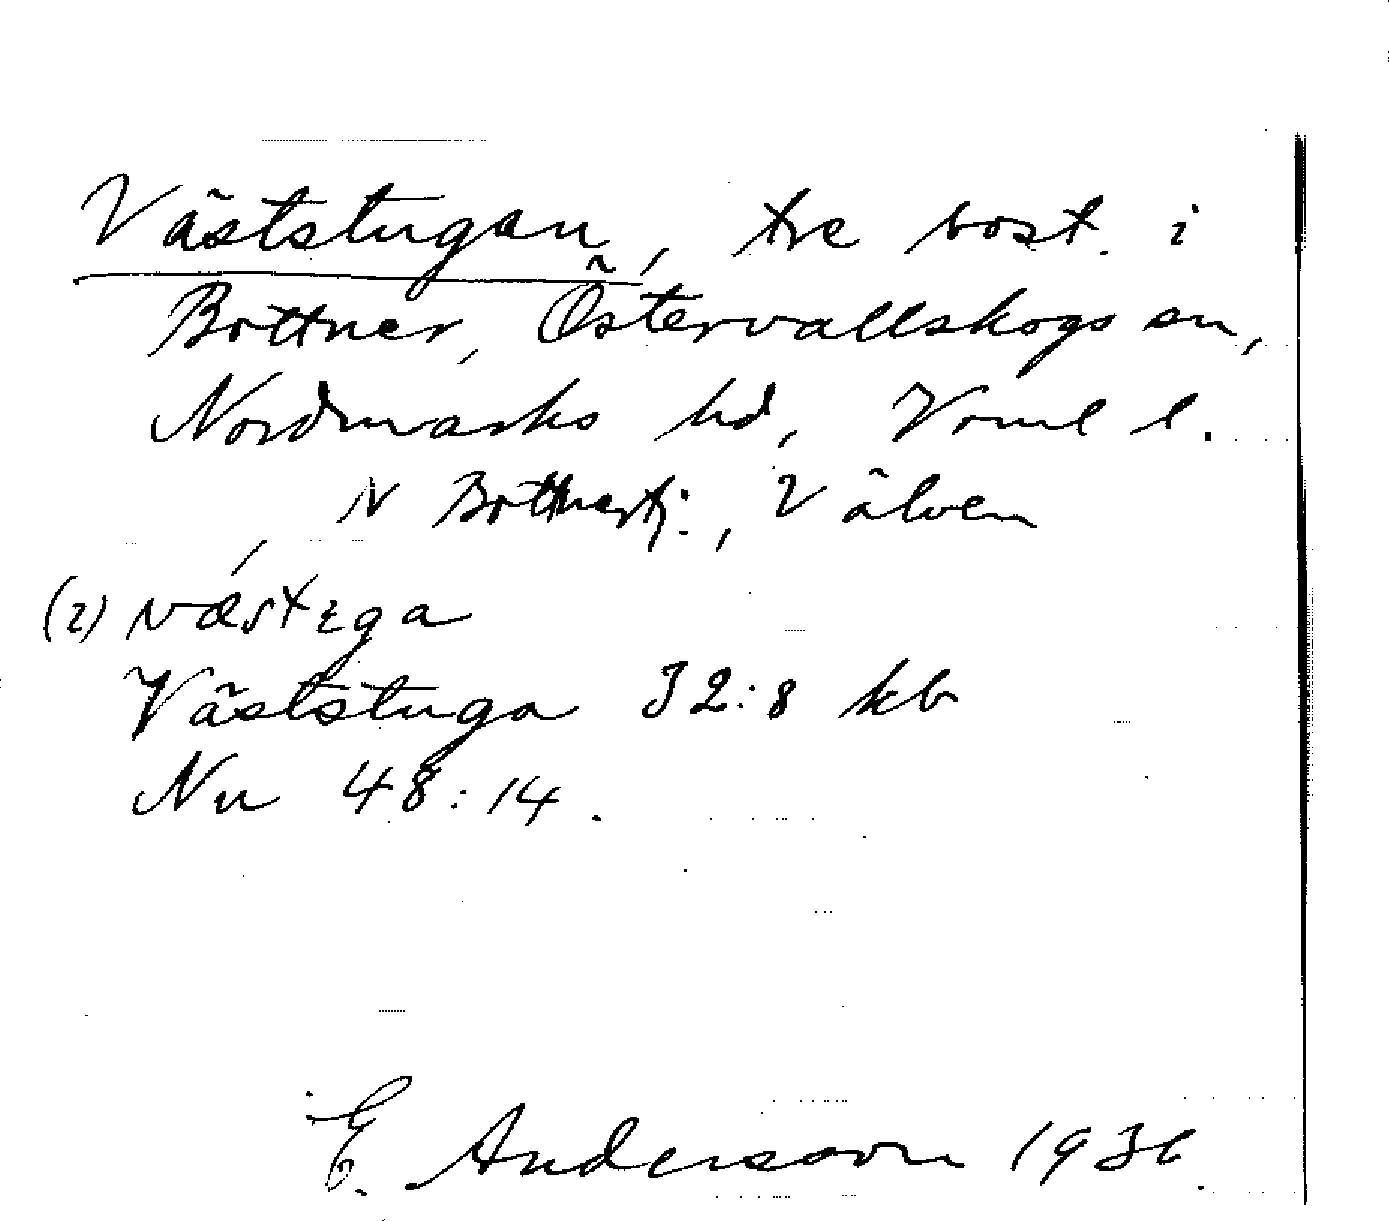 Väststugan, tre bost. i
Bottner, Östervallskogs sn,
Nordmarks hd, Vrml l.
N Bottnertj:, V älven
(2) væstega
Väststuga 32:8 kb
Nu 48:14.
E. Andersson 1936.